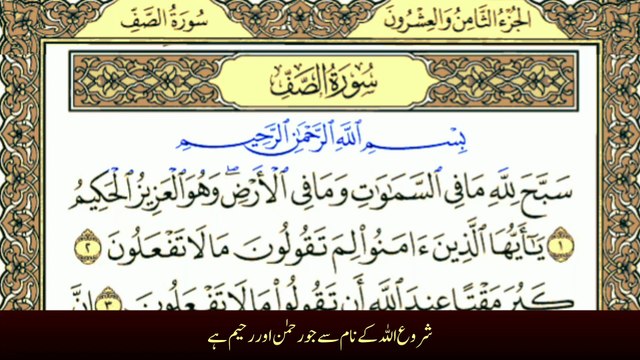 الجُزْءُ الثَّامِنُ وَالْعِشْرُونَ
سُورَةُ الصَّفِّ
سُورَةُ الصَّفِّ
بِسْمِ ٱللَّهِ ٱلرَّحْمَٰنِ ٱلرَّحِيمِ
سَبَّحَ لِلَّهِ مَا فِى ٱلسَّمَٰوَٰتِ وَمَا فِى ٱلْأَرْضِ ۖ وَهُوَ ٱلْعَزِيزُ ٱلْحَكِيمُ
١ يَٰٓأَيُّهَا ٱلَّذِينَ ءَامَنُوا۟ لِمَ تَقُولُونَ مَا لَا تَفْعَلُونَ ٢
كَبُرَ مَقْتًا عِندَ ٱللَّهِ أَن تَقُولُوا۟ مَا لَا تَفْعَلُونَ ٣ إِنَّ
شروع اللہ کے نام سے جو رحمٰن اور رحیم ہے